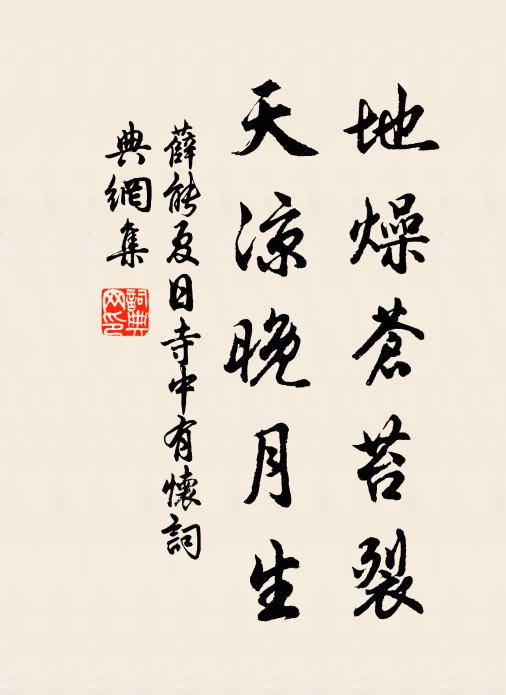 地燥蒼苔裂
天涼晚月生
薛能夏日寺中有懷詞
典網集
詞典網印